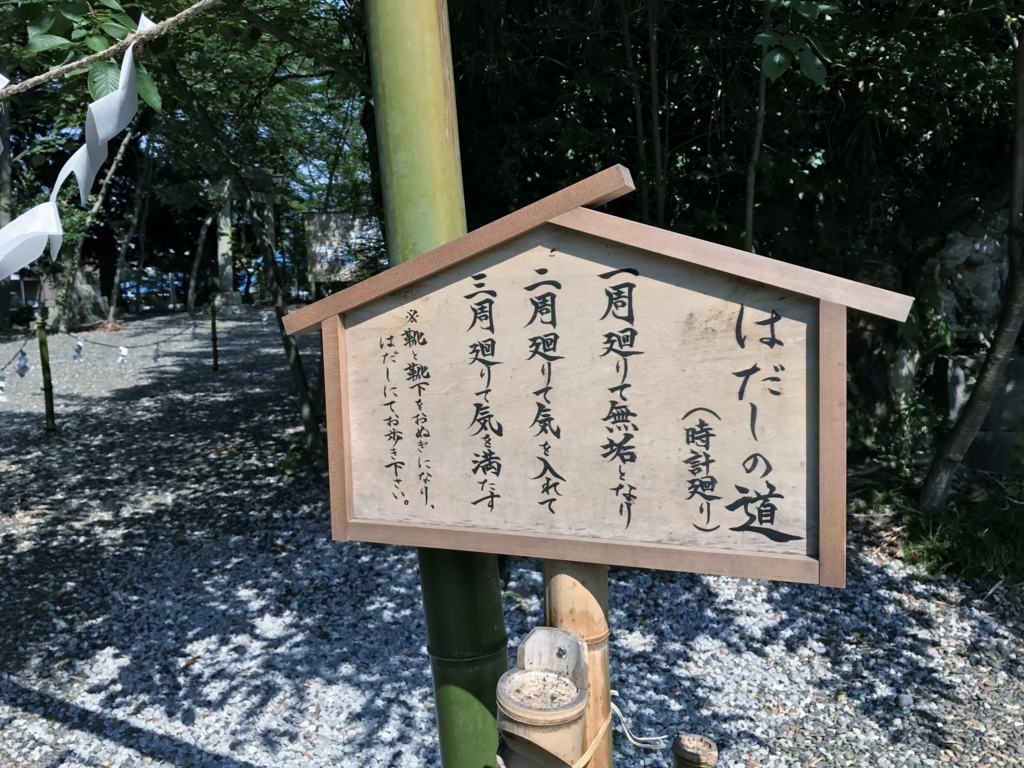 はだしの道
（時計廻り）
一周廻りて無垢となり
二周廻りて気を入れて
三周廻りて気を満たす
※靴と靴下をおぬぎになり、
はだしにてお歩き下さい。